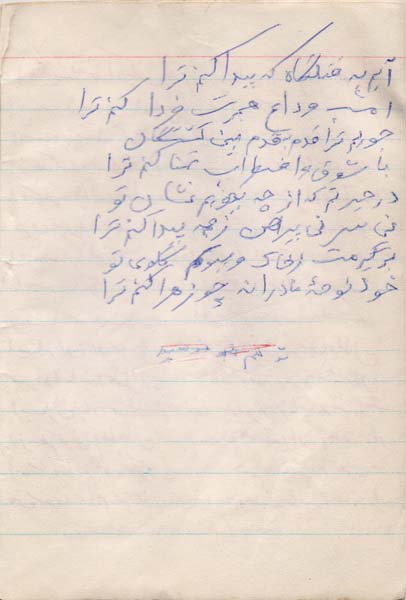 آیم به قتلگاه که پیدا کنم ترا
امشب وداع فردا کنم ترا
جویم ترا قدم بقدم بین کشتگان
با شوق و اضطراب تمنا کنم ترا
در حیرتم که از چه بجویم نشان تو
نی سر نی پیرهن ز چه پیدا کنم ترا
برگیرمت ز خاک و ببوسم گلوی تو
خود نوحۀ مادرانه چو زهرا کنم ترا